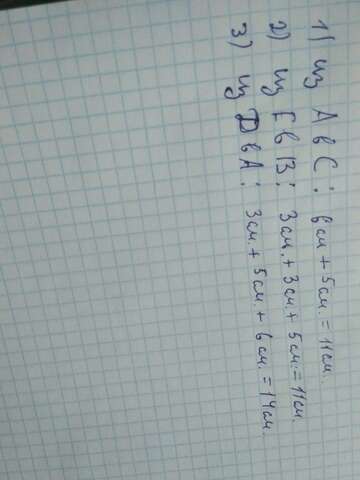 1) из А в С: 6 см + 5 см. = 11 см.
2) из Е в В: 3 см. + 3 см. + 5 см. = 11 см.
3) из D в А: 3 см. + 5 см. + 6 см. = 14 см.